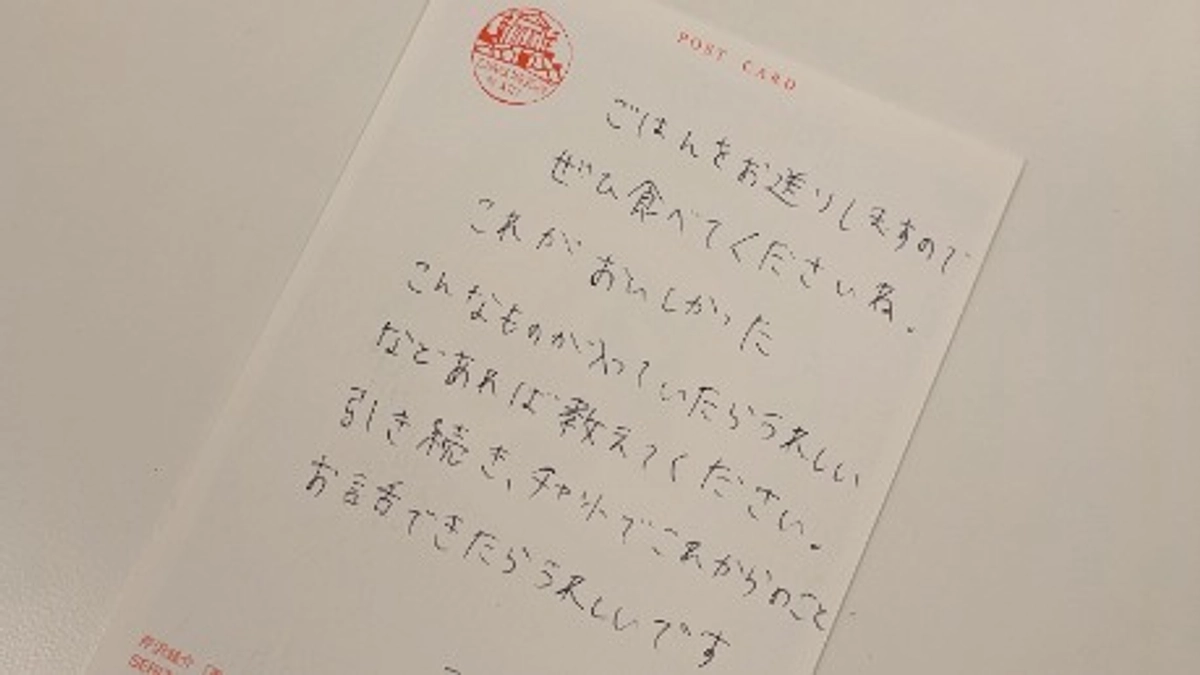 POST CARD
ごはんをお送りしますので
ぜひ食べてくださいね。
これがおいしかった
こんなものが入っていたらうれしい
などあれば教えてください。
引き続き、チャットでこれからのこと
お話できたらうれしいです
芹沢銈介